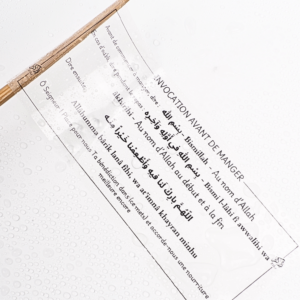 INVOCATION AVANT DE MANGER
بسم الله - Bismillâh - Au nom d'Allah
بسم الله في أوله وآخره - Bismi l-lâhi fî awwalihi wa
âkhirihi - Au nom d'Allah au début et à la fin
Dire ensuite,
اللهم بارك لنا فيه وأطعمنا خيرا منه
Allâhumma bârik lanâ fihi, wa at'imnâ khayran minhu
Ô Seigneur ! pour nous la bénédiction dans (ce mets) et accorde-nous une nourriture
meilleure encore